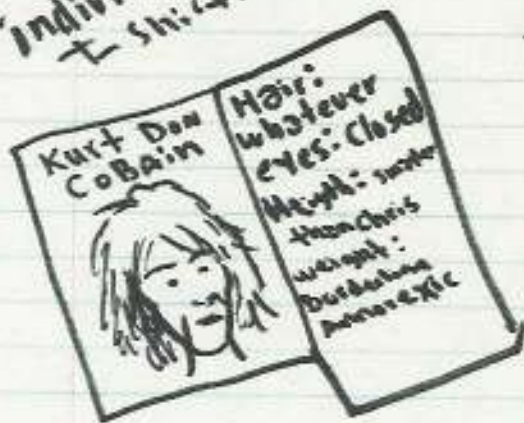 t shirt
Kurt Don
CoBain
Hair:
whatever
eyes: Closed
Height: smaller
than Chris
weight:
Borderline
Annorexic